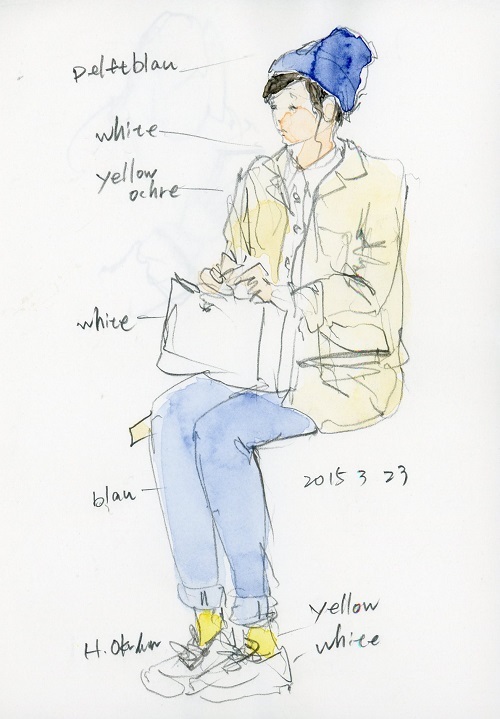 Delftblau
white
yellow
ochre
white
blau
2015 3 23
yellow
white
H.